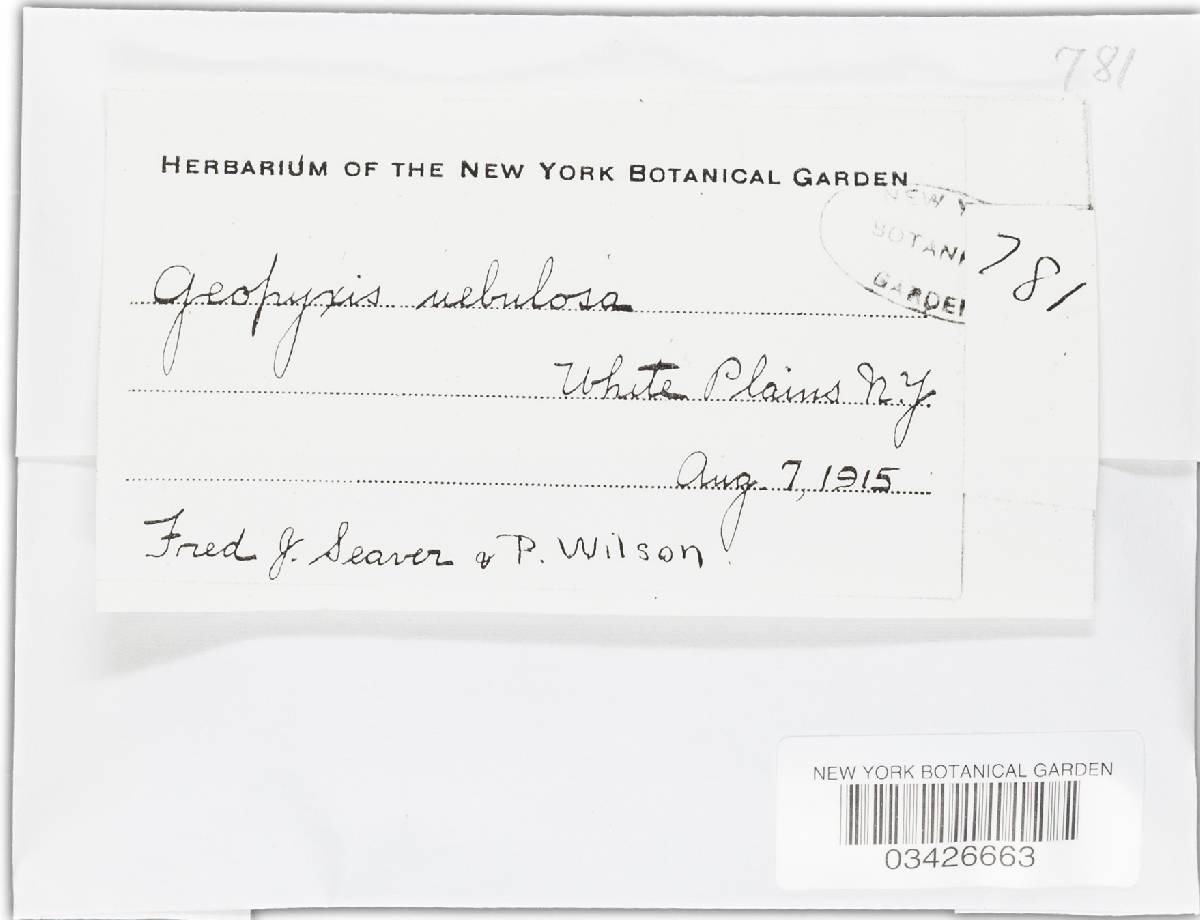 781
HERBARIUM OF THE NEW YORK BOTANICAL GARDEN
NEW Y
BOTANI
GARDEN
781
Geopyxis nebulosa
White Plains N.Y.
Aug. 7, 1915
Fred J. Seaver & P. Wilson
NEW YORK BOTANICAL GARDEN
03426663